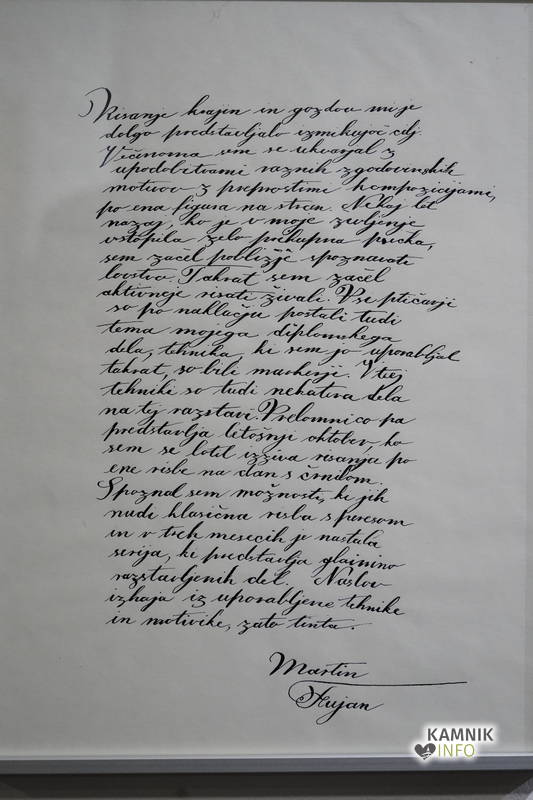 Risanje krajin in gozdov mi je
dolgo predstavljalo izmikujoč cilj.
Večinoma sem se ukvarjal z
upodobitvami raznih zgodovinskih
motivov z preprostimi kompozicijami,
po ena figura na stran. Nekaj let
nazaj, ko je v moje življenje
vstopila zelo prikupna psička,
sem začel pobližje spoznavati
lovstvo. Takrat sem začel
aktivneje risati živali. Vse ptičarji
so po naključju postali tudi
tema mojega diplomskega
dela, tehnika, ki sem jo uporabljal
takrat, so bili markerji. V tej
tehniki so tudi nekatera dela
na tej razstavi. Prelomnico pa
predstavlja letošnji oktober, ko
sem se lotil izziva risanja po
ene risbe na dan s črnilom.
Spoznal sem možnosti, ki jih
nudi klasična risba s peresom
in v treh mesecih je nastala
serija, ki predstavlja glavnino
razstavljenih del. Naslov
izhaja iz uporabljene tehnike
in motivike, zato tinta.
Martin
KAMNIK
INFO